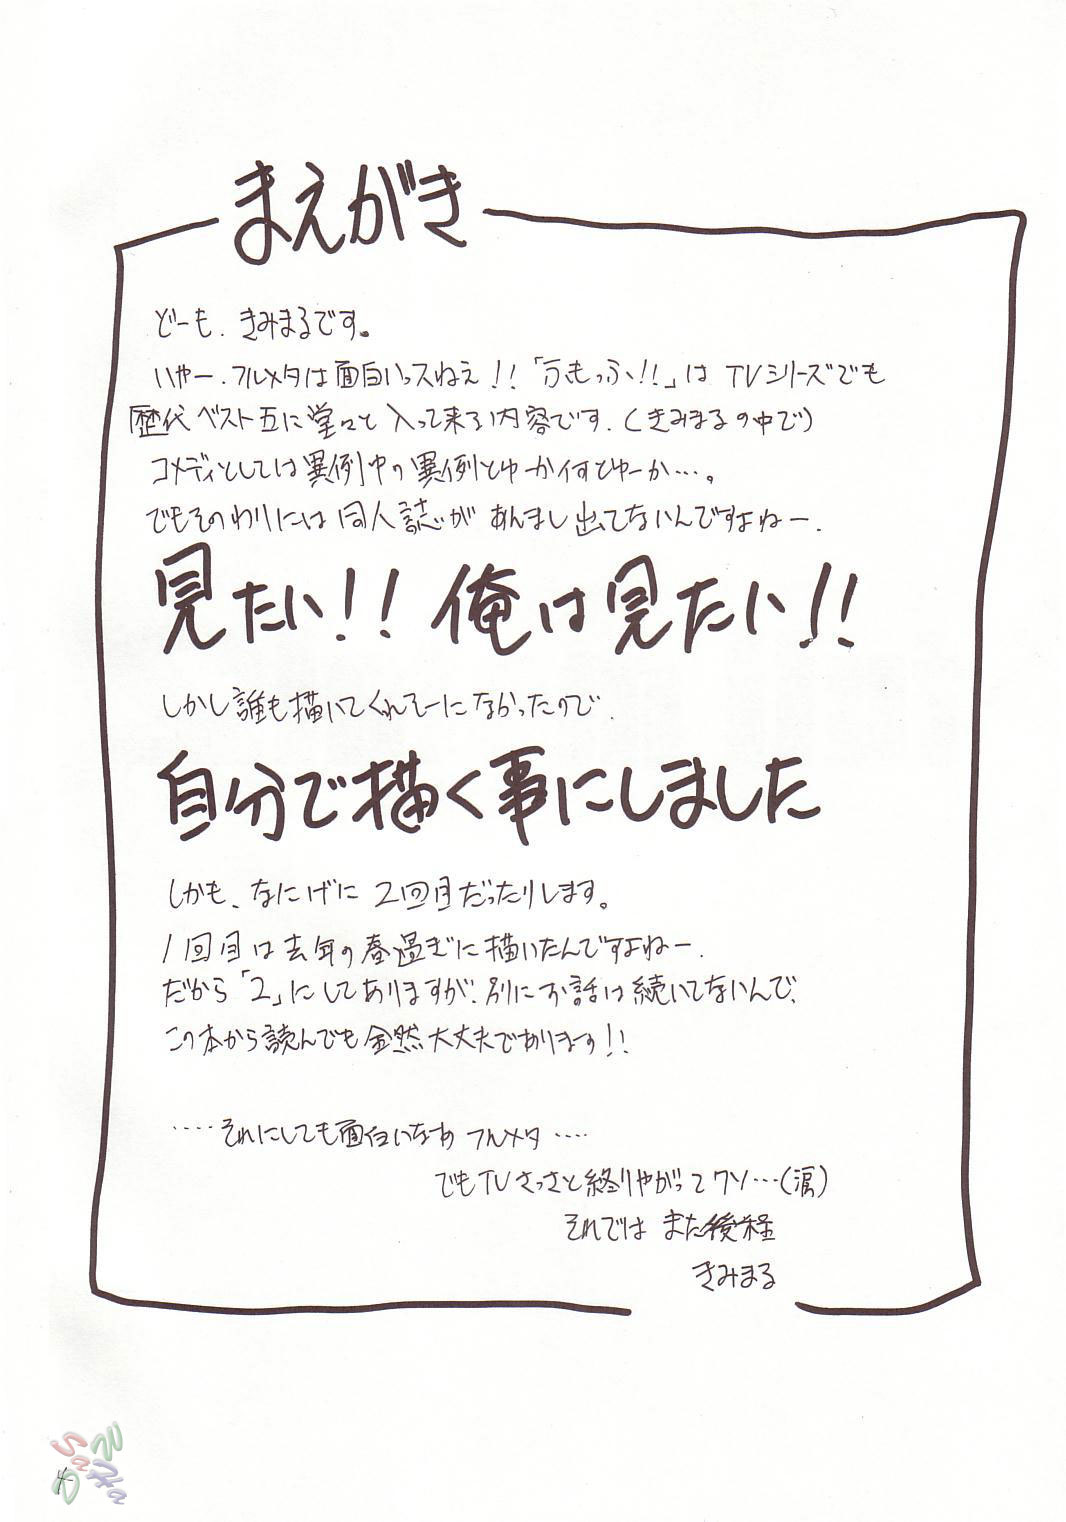 まえがき
どーも、きみまるです。
いやー、フルメタは面白いっスねえ!!「ふもっふ!!」は TVシリーズでも
歴代ベスト五に堂々と入って来る内容です、(きみまるの中で)
コメディとしては異例中の異例とゆーか何とゆーか…。
でもそのわりには同人誌があんまし出てないんですよねー、
見たい!! 俺は見たい!!
しかし誰も描いてくれそーになかったので、
自分で描く事にしました
しかも、なにげに2回目だったりします。
1回目は去年の春過ぎに描いたんですよねー、
だから「2」にしてありますが、別にお話は続いてないんで、
この本から読んでも全然大丈夫であります!!
……それにしても面白いなあ フルメタ……
でもTVさっさと終りやがってクソ…(涙)
それでは また後程
きみまる
4